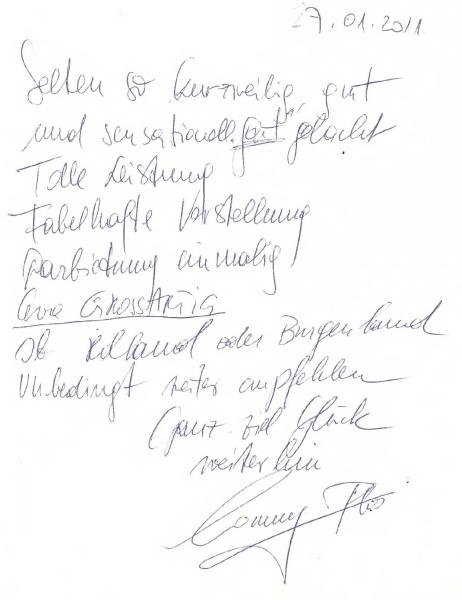 27.01.2011
Selten so kurzweilig, gut
und sensationell "gut" gelacht
Tolle Leistung
Fabelhafte Vorstellung
Darbietung einmalig
GROSSARTIG
Ob Hilland oder Burgenland
Unbedingt weiter empfehlen
Ganz viel Glück
weiterhin